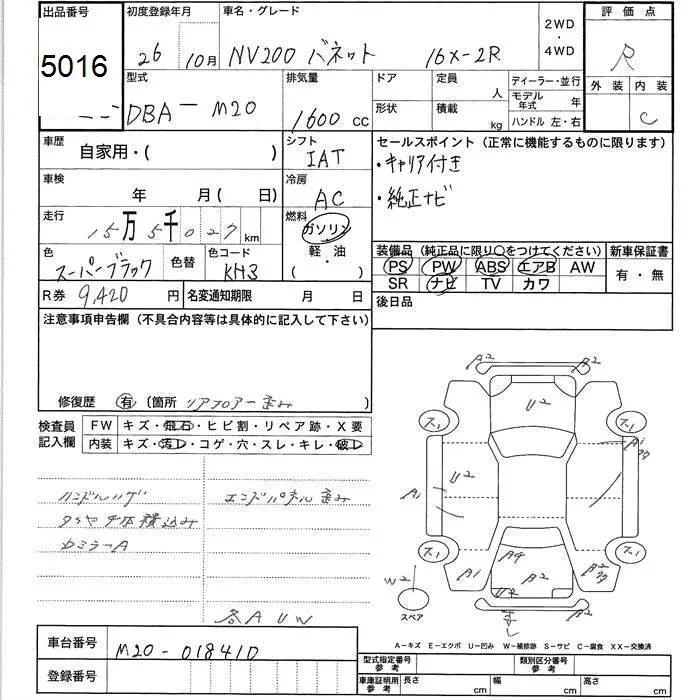 出品番号 初度登録年月 車名・グレード 2WD ・ 4WD 評価点
5016 26 10月 NV200 バネット 16X-2R R
外装 内装
C
型式 排気量 ドア 定員 人 ディーラー・並行
DBA-M20 1600 cc 形状 積載 kg モデル年式 年
ハンドル 左・右
車歴 自家用・( ) シフト IAT セールスポイント (正常に機能するものに限ります)
・キャリア付き
・純正ナビ
車検 年 月( 日) 冷房 AC
走行 15万5千027km 燃料 ガソリン 軽・油 ( )
色 スーパーブラック 色替 色コード KH3
装備品 (純正品に限り○をつけてください) 新車保証書
PS PW ABS エアB AW 有・無
SR ナビ TV カワ
R券 9,420円 名変通知期限 月 日 後日品
注意事項申告欄 (不具合内容等は具体的に記入して下さい)
修復歴 有 (箇所 リアフロアー歪み )
検査員記入欄 FW キズ・飛石・ヒビ割・リペア跡・X要
内装 キズ・汚レ・コゲ・穴・スレ・キレ・破レ
ハンドルハゲ エンドパネル歪み
タイヤ4本積込み
カミラーA
各AUW
A2 A2
U2
ス1 ス1
A1
U2
A1
ス1 ス1
A4
A1 A2
U2
W2
A2
スペア
A-キズ E-エクボ U-凹み W-補修跡 S-サビ C-腐食 XX-交換済
車台番号 M20-018410
登録番号
型式指定番号 参考 類別区分番号 参考
車庫証明用 参考 長さ cm 幅 cm 高さ cm